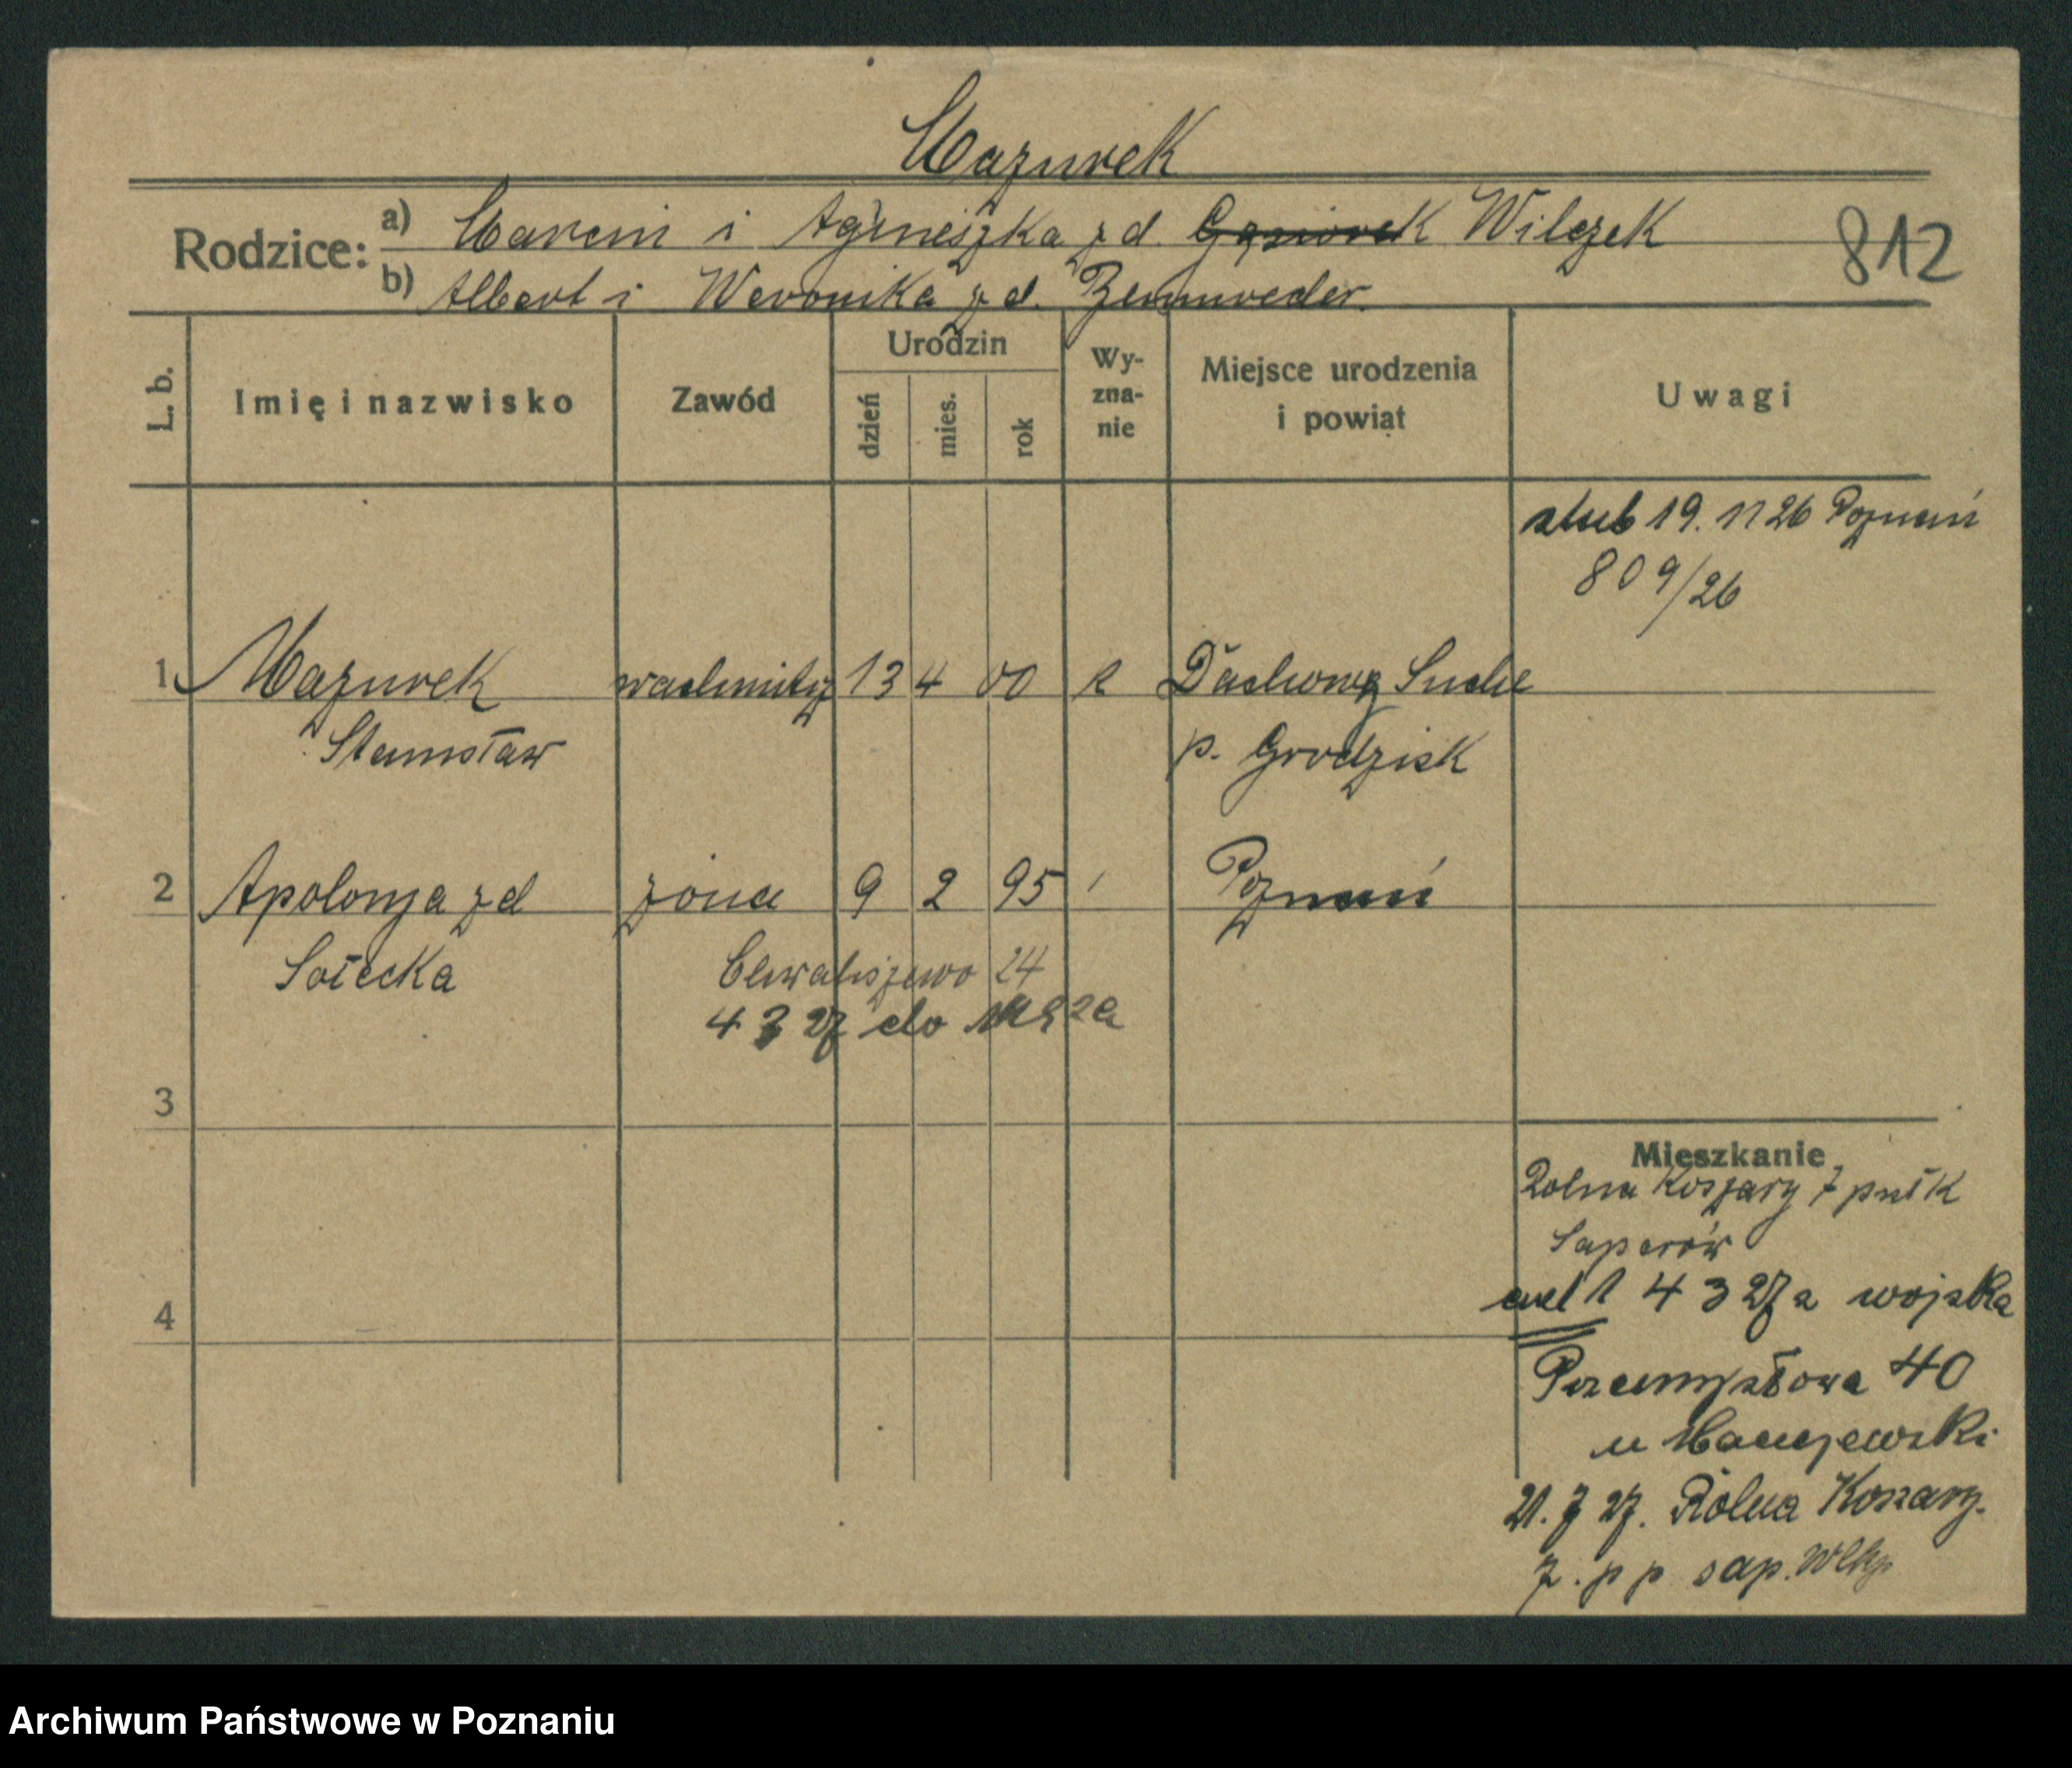 Mazurek
Rodzice: a) Marcin i Agnieszka z d. Gąsiorek Wilczek
812
b) Albert i Weronika z d.
L. b.
Imię i nazwisko
Zawód
Urodzin
dzień
mies.
rok
Wy-
zna-
nie
Miejsce urodzenia
i powiat
Uwagi
ślub 19. 11 26 Poznań
809/26
1 Mazurek wachmistrz 13 4 00 k Suche
Stanisław p. Grodzisk
2 Apolonja z d żona 9 2 95 Poznań
Sołecka Chwaliszewo 24
4 3 27 do męża
3
Mieszkanie
Rolna Koszary 7 pułk
Saperów
1 4 3 27 z wojska
4
Przemysłowa 40
u Maciejewski
21. 7 27. Rolna Koszary.
7. p p sap. Wlkp
Archiwum Państwowe w Poznaniu